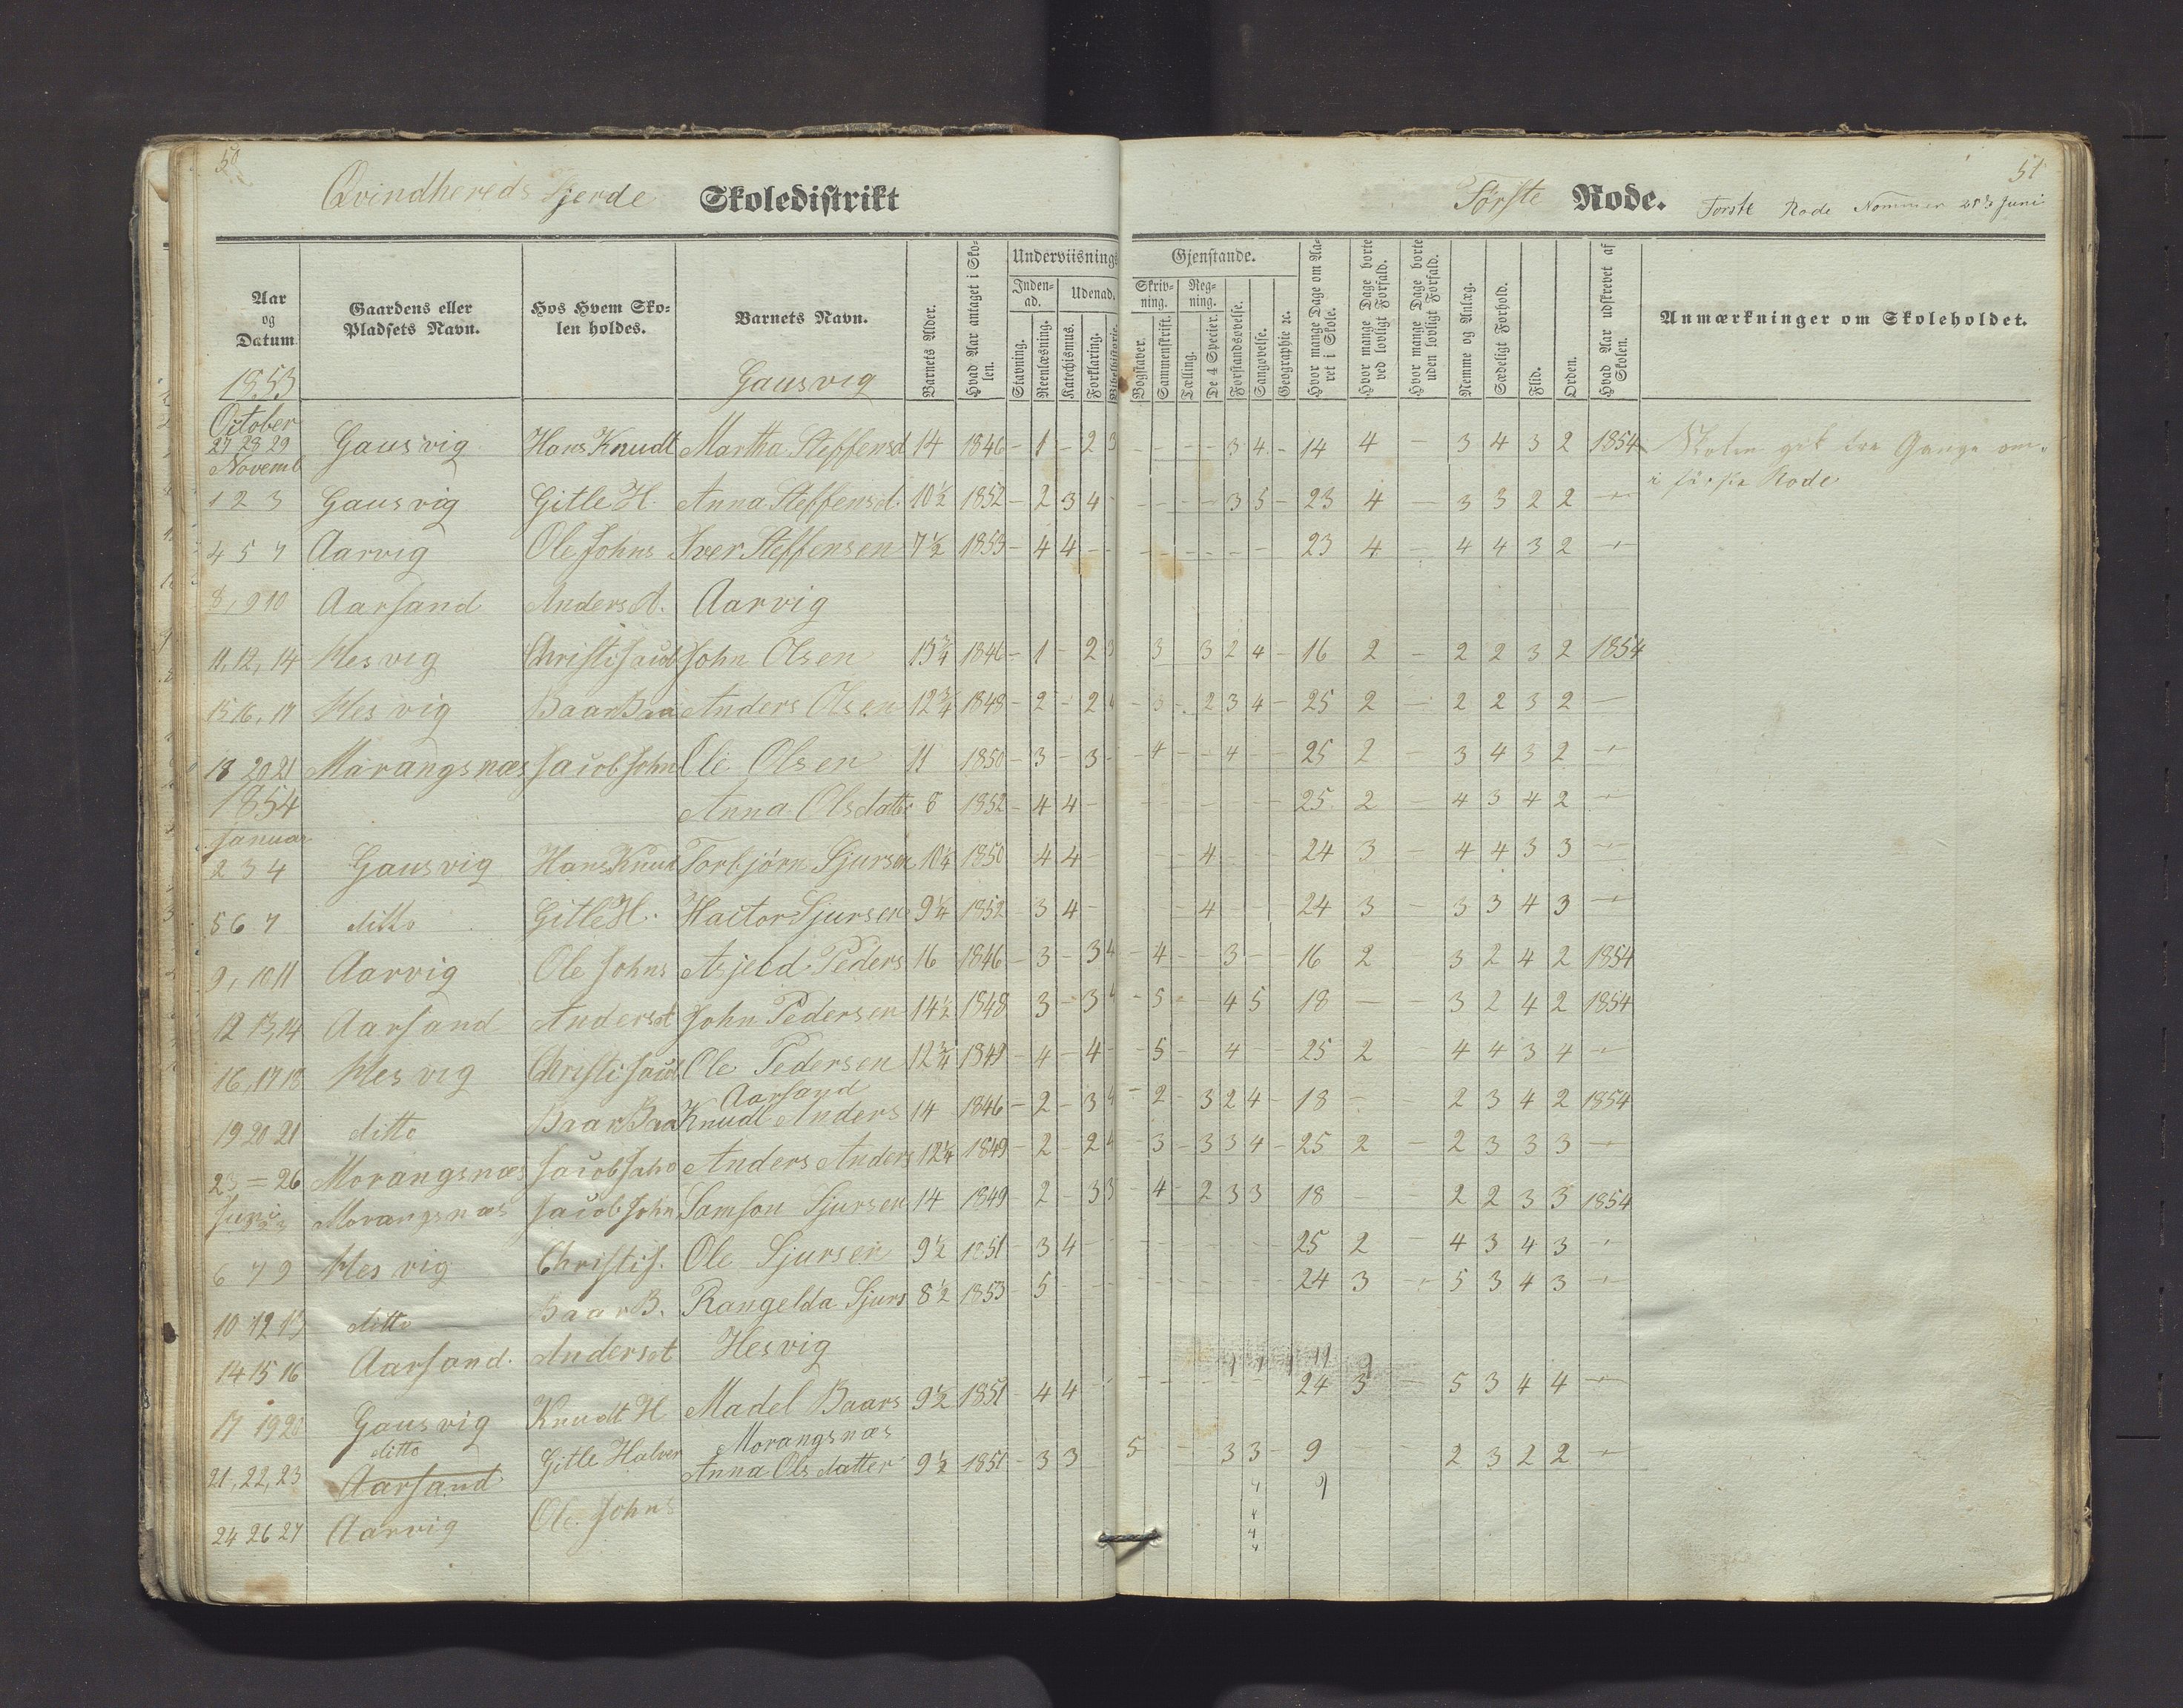 50
51
Qvindhereds Fjerde Skoledistrikt
Første Rode. Første Rode Nommer Juni
Aar og Datum.
Gaardens eller Pladsets Navn.
Hos Hvem Skolen holdes.
Barnets Navn.
Barnets Alder.
Hvad Aar antaget i Skolen.
Underviisnings Gjenstande.
Indenad. Udenad. Skrivning. Regning.
Stavning. Reenlæsning. Katechismus. Forklaring. Bibelhistorie. Bogstaver. Sammenskrift. Tælling. De 4 Specier. Forstandsøvelse. Sangøvelse. Geographie ic.
Hvor mange Dage om Aaret i Skole.
Hvor mange Dage borte ved lovligt Forfald.
Hvor mange Dage borte uden lovligt Forfald.
Nemme og Anlæg.
Sædeligt Forhold.
Flid.
Orden.
Hvad Aar udskrevet af Skolen.
Anmærkninger om Skoleholdet.
1853 Gausvig
October
27 28 29 Gausvig Hans Knudt Martha Steffensd 14 1846 - 1 - 2 3 - - - - 3 4 - 14 4 - 3 4 3 2 1854 Skolen gik tre Gange om
Novemb
i første Rode
1 2 3 Gausvig Gitle H. Anna Steffensd. 10½ 1852 - 2 3 4 - - - - 3 5 - 23 4 - 3 3 2 2 -
4 5 7 Aarvig Ole Johns Iver Steffensen 7½ 1853 - 4 4 - - - - - - - - 23 4 - 4 4 3 2 -
8, 9 10 Aarsand Anders A. Aarvig
11, 12, 14 Hesvig Christi Jacob John Olsen 13¾ 1846 - 1 - 2 3 3 3 2 4 - 16 2 - 2 2 3 2 1854
15 16, 17 Hesvig Baar Baa Anders Olsen 12¾ 1848 - 2 - 2 4 - 3 - 2 3 4 - 25 2 - 2 2 3 2 -
18 20 21 Marangsnæs Jacob John Ole Olsen 11 1850 - 3 - 3 - - 4 - - 4 - - 25 2 - 3 4 3 2 -
1854 Anna Olsdatter 8 1852 - 4 4 - - - - - - - 25 2 - 4 3 4 2 -
Januar
2 3 4 Gausvig Hans Knud Torbjörn Sjursen 10¼ 1850 4 4 - - - 4 - - 24 3 - 4 4 3 3 -
5 6 7 ditto Gitle H. Hactor Sjursen 9¼ 1852 - 3 4 - - - 4 - - 24 3 - 3 3 4 3 -
9, 10 11 Aarvig Ole Johns Asjeld Peders 16 1846 - 3 - 3 4 - 4 - - 3 - - 16 2 3 2 4 2 1854
12 13, 14 Aarsand Anders A John Pedersen 14½ 1848 3 - 3 4 - 5 - - 4 5 18 - - 3 2 4 2 1854
16, 17 18 Hesvig Christi Jacob Ole Pedersen 12¾ 1849 - 4 - 4 - - 5 - 4 - - 25 2 - 4 4 3 4 -
Aarsand
19 20 21 ditto Baar Baa Knudt Anders 14 1846 - 2 - 3 4 - 2 - 3 2 4 - 18 - - 2 3 4 2 1854
23 = 26 Morangsnæs Jacob John Anders Anders 12¼ 1849 - 2 - 2 4 - 3 - 3 3 4 - 25 2 - 2 3 3 3 -
Juni Morangsnæs Jacob John Samson Sjursen 14 1849 - 2 - 3 3 - 4 - 2 3 3 18 - - 2 2 3 3 1854
6 7 9 Hesvig Christi J. Ole Sjursen 9½ 1851 - 3 4 - - - - - - - - 25 2 - 4 3 4 3 -
10 12 13 ditto Baar B. Rangelda Sjurs 8½ 1853 - 5 - - - - - - - - - 24 3 - 5 3 4 3 -
14 15 16 Aarsand. Anders A Hesvig
17 19 20 Gausvig Knudt H Madel Baars 9½ 1851 - 4 4 - - - - - - 24 3 - 5 3 4 4 -
ditto Morangsnæs
21, 22, 23 Aarsand Gitle Halver Anna Olsdatter 9½ 1851 - 3 3 5 - - 3 3 - 9 - 2 3 2 2 -
24 26 27 Aarvig Ole Johns